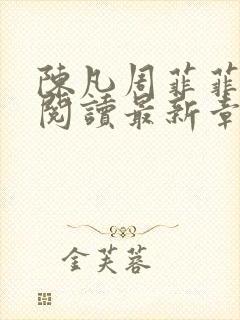 陳凡周菲菲
閱讀最新章
金芙蓉